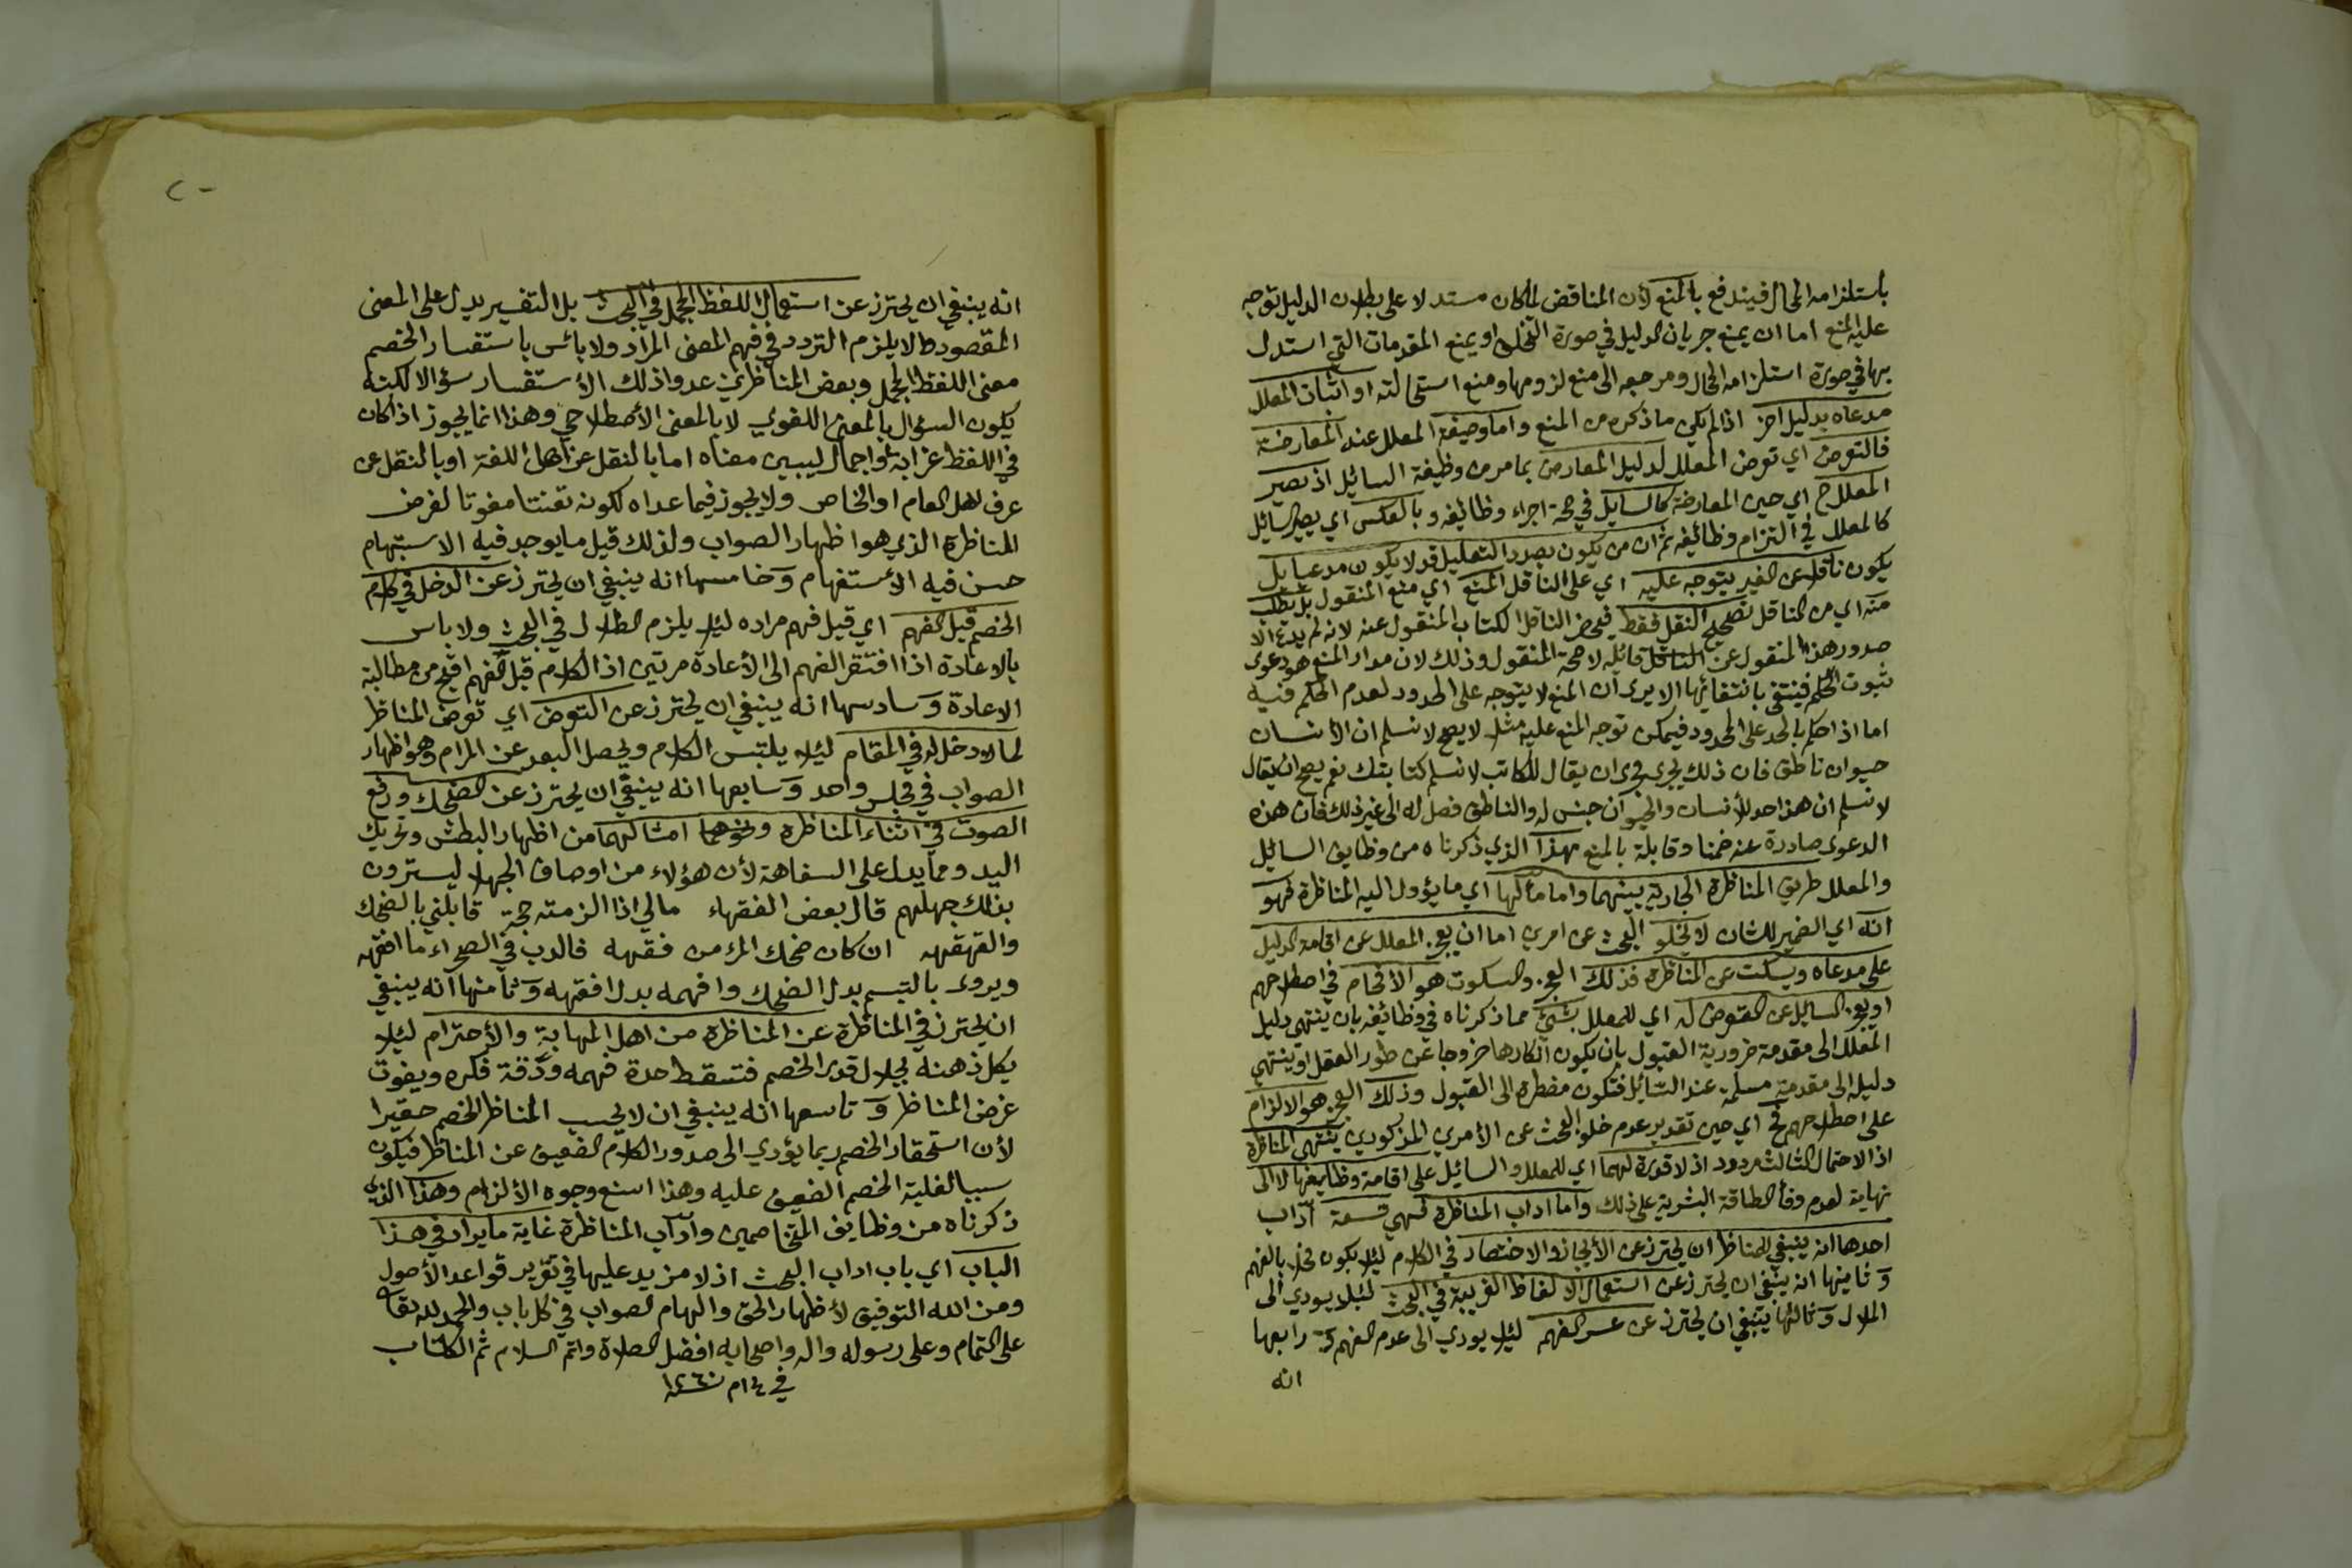 باستلزامه المحال فيندفع بالمنع لأن المناقض لما كان مستدلا على بطلان الدليل توجه
عليه المنع اما ان يمنع جريان الدليل في صورة التخلف او يمنع المقدمات التي استدل
بها في صورة استلزامه المحال ومرجعه الى منع لزومها ومنع استحالته او اثبات المعلل
مدعاه بدليل اخر اذا لم يكن ما ذكره من المنع واما وضيفة المعلل عند المعارضة
فالتعرض اي تعرض المعلل لدليل المعارض بما مر من وظيفة السائيل اذ يصير
المعلل ح اي حين المعارضة كالسايل في صحة اجراء وظائيفه وبالعكس اي يصير السائيل
كالمعلل في التزام وظائيفه ثم ان من يكون بصدد التعليل قد لا يكون مدعيا بل
يكون ناقلا عن الغير يتوجه عليه اي على الناقل المنع اي منع المنقول بل يطلب
منه اي من الناقل تصحيح النقل فقط فيحضر الناقل الكتاب المنقول عنه لانه لم يدع الا
صدور هذا المنقول عن الناقل قائله لا صحة المنقول وذلك لان مدار المنع هو دعوى
ثبوت الحكم فينتفي بانتفائها الا يرى ان المنع لا يتوجه على الحدود لعدم الحكم فيه
اما اذا حكم بالحد على المحدود فيمكن توجه المنع عليه مثلا لا يصح لا نسلم ان الأنسان
حيوان ناطق فان ذلك يجري مجرى ان يقال للكاتب لا نسلم كتابتك نعم يصح ان يقال
لا نسلم ان هذا حد للأنسان والحيوان جنس له والناطق فصل له الى غير ذلك فان هذه
الدعوى صادرة عنه ضمنا وقابلة بالمنع هذا الذي ذكرناه من وظايف السائيل
والمعلل طريق المناظرة الجارية بينهما واما مآلها اي ما يؤول اليه المناظرة فهو
انه اي الضمير للشان لا يخلو البحث عن امرين اما ان يعجز المعلل عن اقامة الدليل
على مدعاه ويسكت عن المناظرة فذلك العجز والسكوت هو الأفحام في اصطلاحهم
او يعجز السايل عن التعرض له اي للمعلل بشيئ مما ذكرناه في وظائفه بان ينتهي دليل
المعلل الى مقدمة ضرورية القبول بان يكون انكارها خروجا عن طور العقل او ينتهي
دليله الى مقدمة مسلمة عند السائيل فتكون مضطرة الى القبول وذلك العجز هو الالزام
على اصطلاحهم فح اي حين تقدير عدم خلو البحث عن الأمرين المذكورين ينتهي المناظرة
اذ الاحتمال الثالث مردود اذ لا قدرة لهما اي للمعلل والسائيل على اقامة وظايفها لا الى
نهاية لعدم وفأ الطاقة البشرية على ذلك واما اداب المناظرة فهي تسعة آداب
احدها انه ينبغي للمناظر ان يحترز عن الأيجاز والاختصار في الكلام ليلا يكون مخلا بالفهم
وثانيها انه ينبغي ان يحترز عن استعمال الالفاظ الغريبة في البحث لئلا يودي الى
الملال وثالثها ينبغي ان يحترز عن عسر الفهم ليلا يودي الى عدم الفهم و رابعها
انه
٢٠
انه ينبغي ان يحترز عن استعمال اللفظ المجمل في البحث بل التفسير يدل على المعنى
المقصود لئلا يلزم التردد في فهم المعنى المراد ولا بائس باستفسار الخصم
معنى اللفظ المجمل وبعض المناظرين عدوا ذلك الأستفسار سؤالا لكنه
يكون السؤال بالمعنى اللغوي لا بالمعنى الأصطلاحي وهذا انما يجوز اذا كان
في اللفظ غرابة واجمال ليبين معناه اما بالنقل عن اهل اللغة او بالنقل عن
عرف اهل العام او الخاص ولا يجوز فيما عداه لكونه تعنتا مفوتا لغرض
المناظرة الذي هو اظهار الصواب ولذلك قيل ما يوجد فيه الاستبهام
حسن فيه الأستفهام وخامسها انه ينبغي ان يحترز عن الدخل في كلام
الخصم قبل الفهم اي قبل فهم مراده ليلا يلزم الضلال في البحث ولا باس
بالاعادة اذا افتقر الفهم الى الأعادة مرتين اذ الكلام قبل الفهم اقبح من مطالبة
الاعادة وسادسها انه ينبغي ان يحترز عن التعرض اي تعرض المناظر
لما لا دخل له في المقام ليلا يلتبس الكلام ويحصل البعد عن المرام وهو اظهار
الصواب في مجلس واحد وسابعها انه ينبغي ان يحترز عن الضحك ورفع
الصوت في اثناء المناظرة ونحوهما امثالهما من اظهار البطش وتحريك
اليد ومما يدل على السفاهة لأن هؤلاء من اوصاف الجهلا ليسترون
بذلك جهلهم قال بعض الفقهاء مالي اذا الزمته حجة قابلني بالضحك
والقهقهه ان كان ضحك المرء من فقهه فالدب في الصحراء ما افقهه
ويروى بالتبسم بدل الضحك وافهمه بدل افقهه وثامنها انه ينبغي
ان يحترز في المناظرة عن المناظرة من اهل المهابة والأحترام ليلا
يكل ذهنه بجلال قدر الخصم فتسقط حدة فهمه ودقة فكره ويفوت
غرض المناظر وتاسعها انه ينبغي ان لا يحسب المناظر الخصم حقيرا
لأن استحقار الخصم ربما يؤدي الى صدور الكلام الضعيف عن المناظر فيكون
سببا لغلبة الخصم الضعيف عليه وهذا اشنع وجوه الألزام وهذا الذي
ذكرناه من وظايف المتخاصمين وآداب المناظرة غاية ما يراد في هذا
الباب اي باب اداب البحث اذ لا مزيد عليها في تقرير قواعد الأصول
ومن الله التوفيق لأظهار الحق والهام الصواب في كل باب والحمد لله تعالى
على التمام وعلى رسوله واله واصحابه افضل الصلاة واتم السلام تم الكتاب
في ١٤ م سنة ١٢٦٠